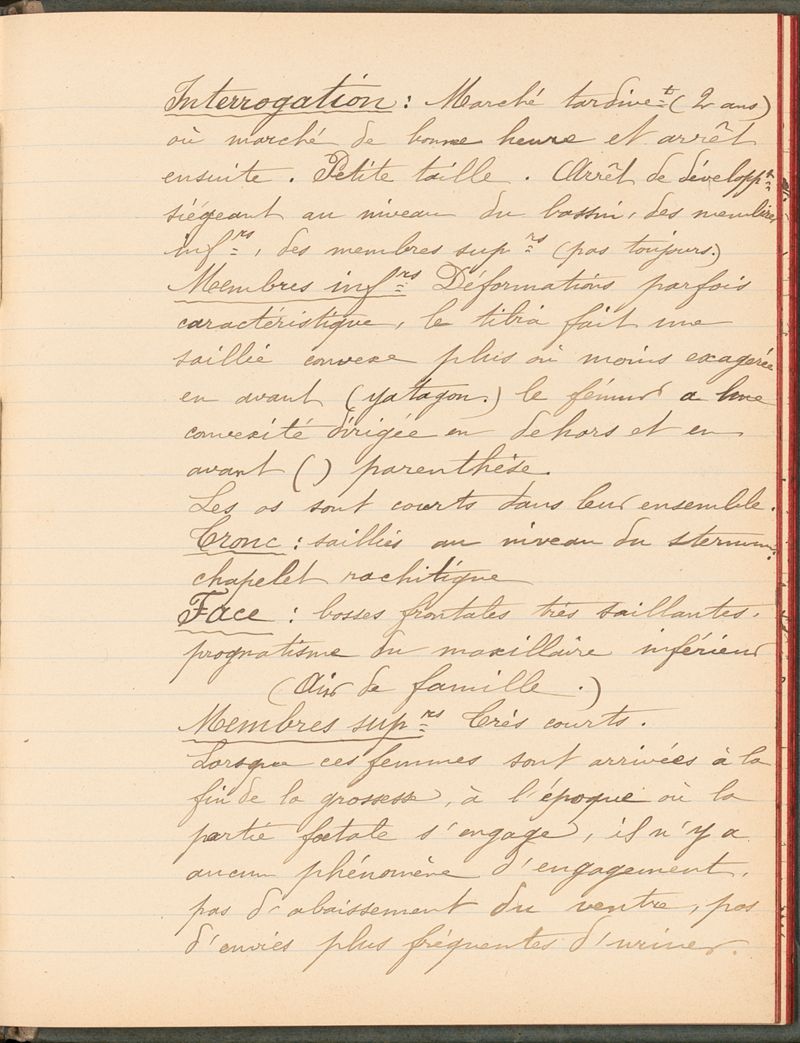 Interrogation : Marché tardivet (2 ans)
où marché de bonne heure et arrêt
ensuite. Petite taille. (Arrêt de développt
siégeant au niveau du bassin, des membres
infrs, des membres suprs (pas toujours.)
Membres infrs Déformations parfois
caractéristique, le tibia fait une
saillie convexe plus où moins exagerée
en avant (yatagan.) le fémur a une
convexité dirigée en dehors et en
avant () parenthèse.
Les os sont courts dans leur ensemble.
Tronc : saillies au niveau du sternum.
chapelet rachitique
Face : bosses frontales très saillantes.
prognatisme du maxillaire inférieur
(Air de famille.)
Membres suprs Très courts.
Lorsque ces femmes sont arrivées à la
fin de la grossesse, à l'époque où la
partie foetale s'engage, il n'y a
aucun phénomène d'engagement,
pas d'abaissement du ventre, pas
d'envies plus fréquentes d'uriner.